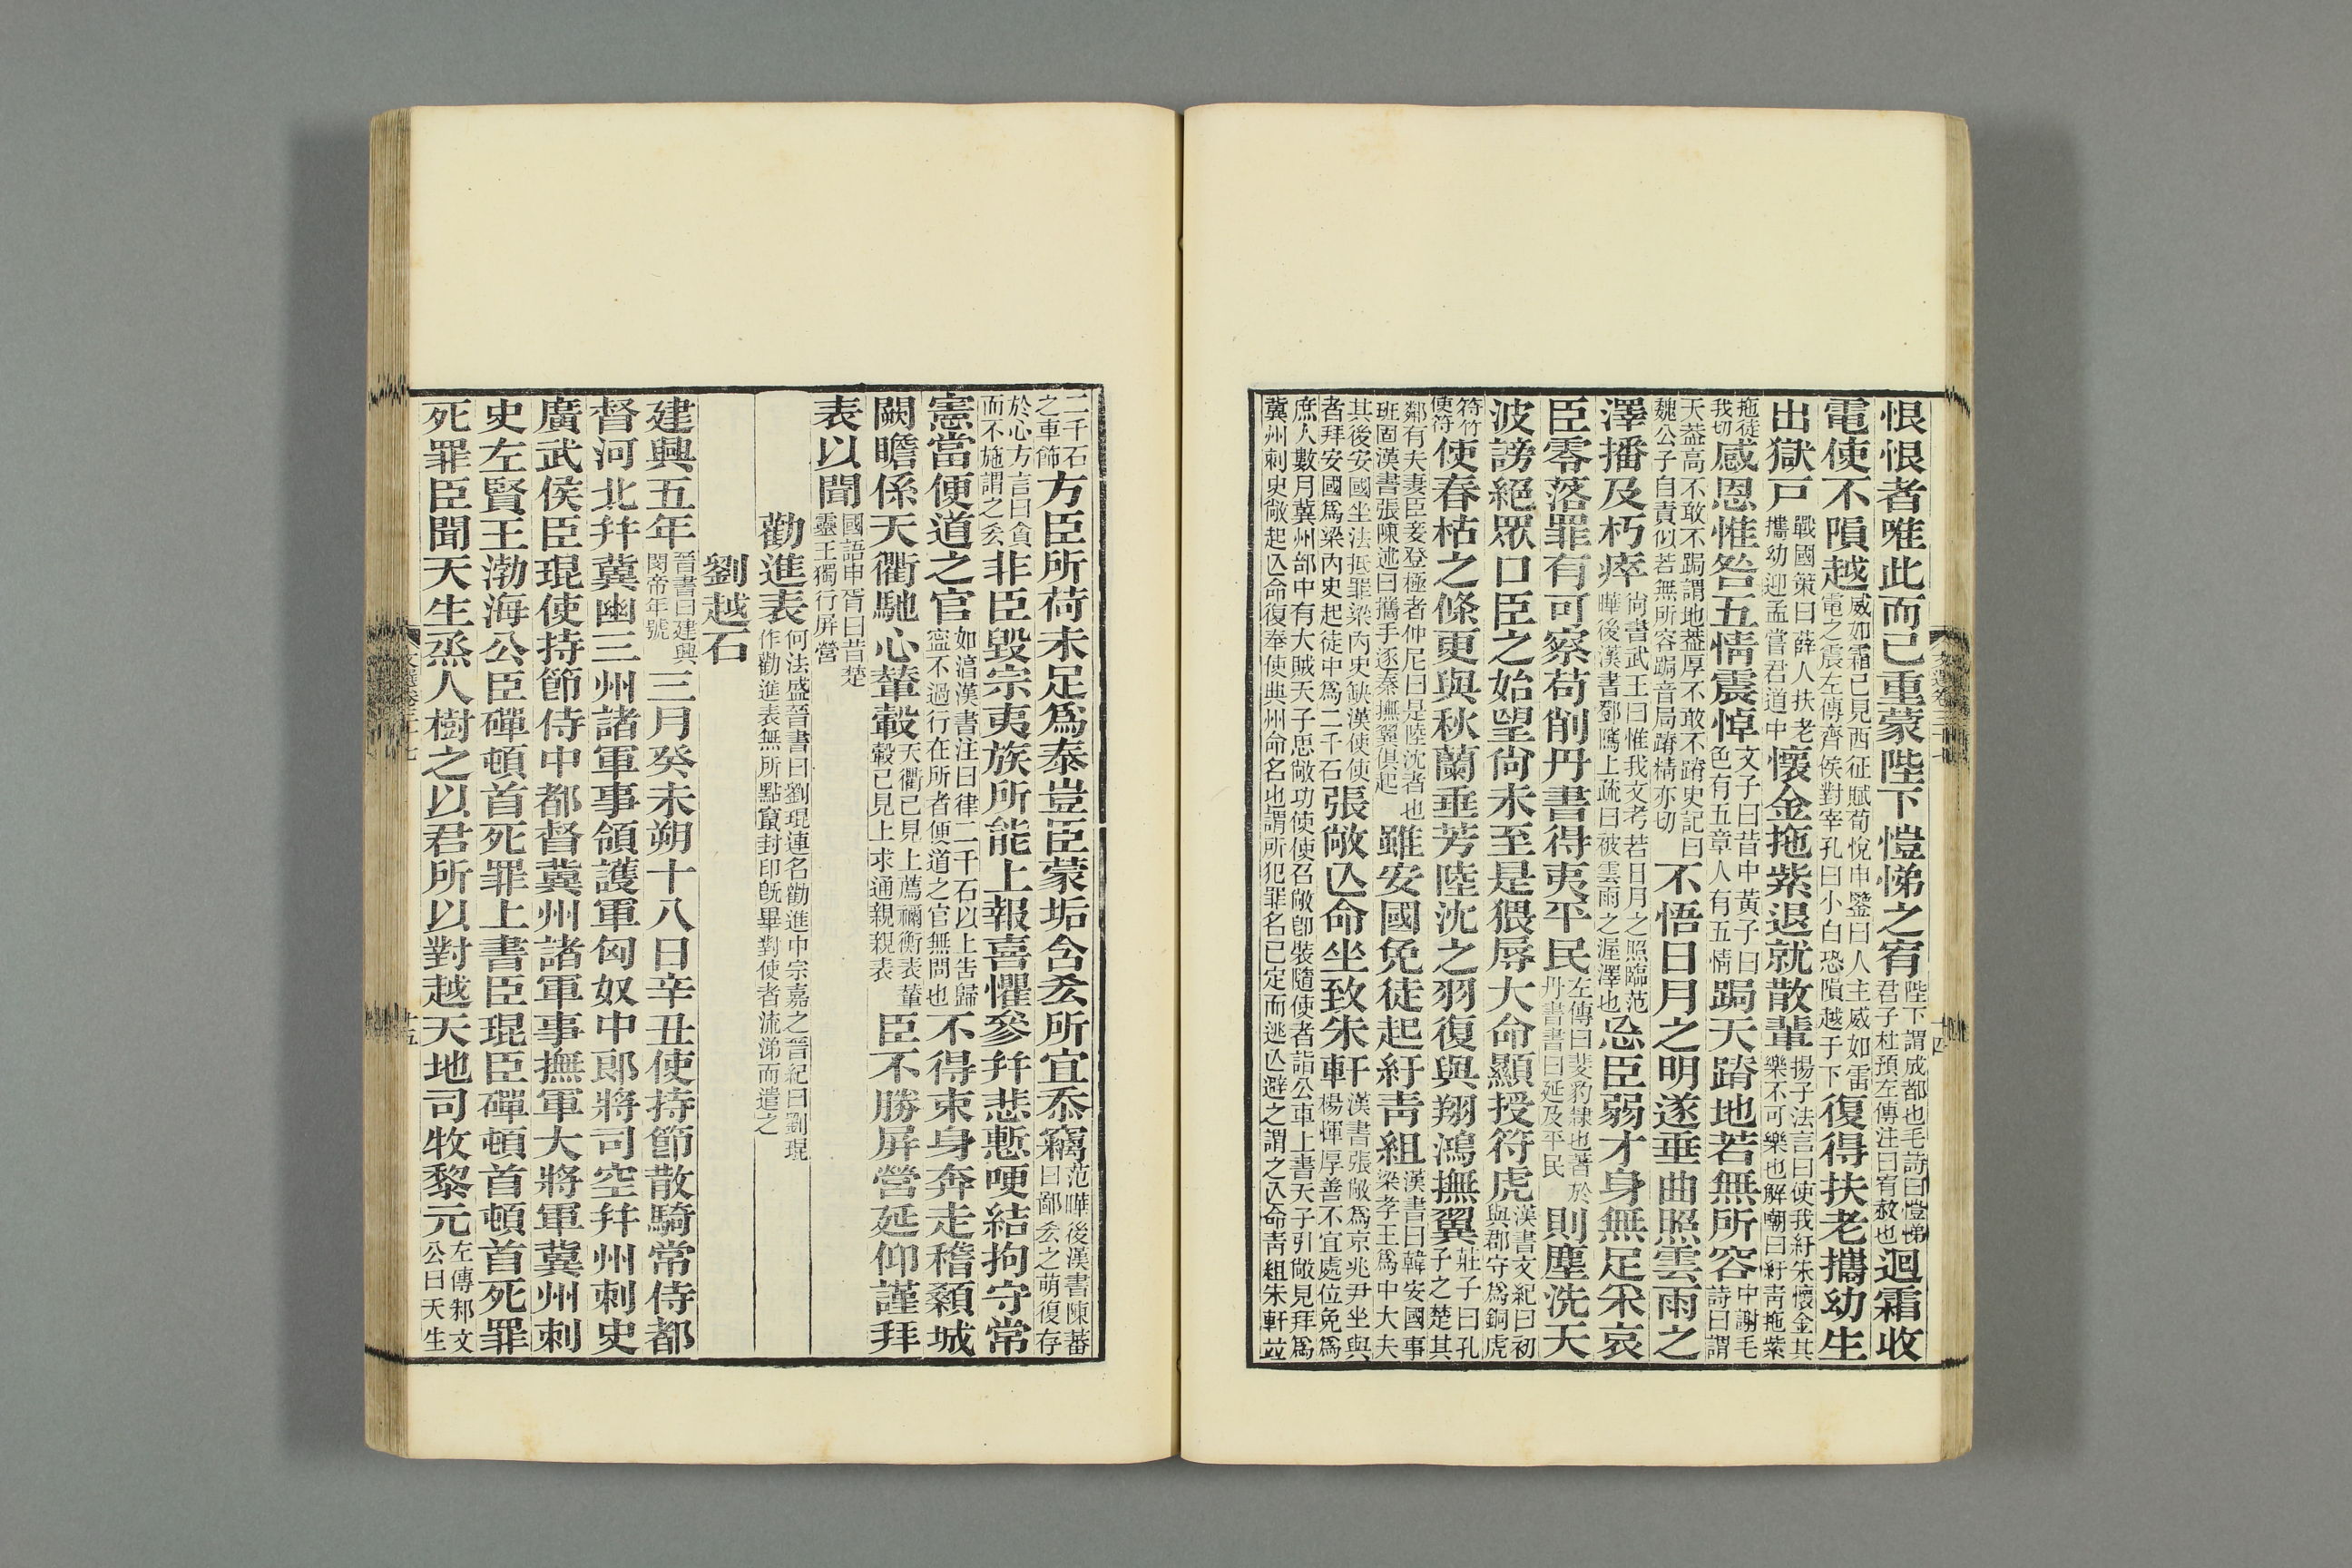 恨恨者唯此而已重蒙陛下愷悌之宥陛下謂成都也毛詩曰愷悌君子杜預左傳注曰宥赦也迴霜收
電使不隕越威如霜已見西征賦荀悅申鑒曰人主威如雷電之震左傳齊侯對宰孔曰小白恐隕越于下復得扶老攜幼生
出獄戸戰國策曰薛人扶老攜幼迎孟嘗君道中懷金拖紫退就散輩揚子法言曰使我紆朱懷金其樂不可樂也解嘲曰紆靑拖紫
拖徒我切感恩惟咎五情震悼文子曰昔中黃子曰色有五章人有五情跼天蹐地若無所容中謝毛詩曰謂
天葢高不敢不跼謂地葢厚不敢不蹐史記曰魏公子自責似若無所容跼音局蹐精亦切不悟日月之明遂垂曲照雲雨之
澤播及朽瘁尙書武王曰惟我文考若日月之照臨范曄後漢書鄧騭上疏曰被雲雨之渥澤也忘臣弱才身無足采哀
臣零落罪有可察苟削丹書得夷平民左傳曰斐豹隸也著於丹書書曰延及平民則塵洗天
波謗絕眾口臣之始望尙未至是猥辱大命顯授符虎漢書文紀曰初與郡守爲銅虎
符竹使符使春枯之條更與秋蘭垂芳陸沈之羽復與翔鴻撫翼莊子曰孔子之楚其
鄰有夫妻臣妾登極者仲尼曰是陸沈者也班固漢書張陳述曰攜手逐秦撫翼俱起雖安國免徒起紆靑組漢書曰韓安國事梁孝王爲中大夫
其後安國坐法抵罪梁內史缺漢使使者拜安國爲梁內史起徒中爲二千石張敞亾命坐致朱軒漢書張敞爲京兆尹坐與楊惲厚善不宜處位免爲
庶人數月冀州部中有大賊天子思敞功使使召敞卽裝隨使者詣公車上書天子引敞見拜爲冀州刺史敞起亾命復奉使典州命名也謂所犯罪名已定而逃亾避之謂之亾命靑組朱軒竝
二千石之車飾方臣所荷未足爲泰豈臣蒙垢含㳟所宜忝竊范曄後漢書陳蕃曰鄙㳟之萌復存
於心方言曰貪而不施謂之㳟非臣毀宗夷族所能上報喜懼參幷悲慙哽結拘守常
憲當便道之官如湻漢書注曰律二千石以上告歸寍不過行在所者便道之官無問也不得束身奔走稽顙城
闕瞻係天衢馳心輦轂天衢已見上薦禰衡表輦轂已見上求通親親表臣不勝屏營延仰謹拜
表以聞國語申胥曰昔楚靈王獨行屏營
勸進表何法盛晉書曰劉琨連名勸進中宗嘉之晉紀曰劉琨作勸進表無所點竄封印旣畢對使者流涕而遣之
劉越石
建興五年晉書曰建興閔帝年號三月癸未朔十八日辛丑使持節散騎常侍都
督河北幷冀幽三州諸軍事領護軍匈奴中郎將司空幷州刺史
廣武侯臣琨使持節侍中都督冀州諸軍事撫軍大將軍冀州刺
史左賢王渤海公臣磾頓首死罪上書臣琨臣磾頓首頓首死罪
死罪臣聞天生烝人樹之以君所以對越天地司牧黎元左傳邾文公曰天生
文選卷三十七
十四
文選卷三十七
十五